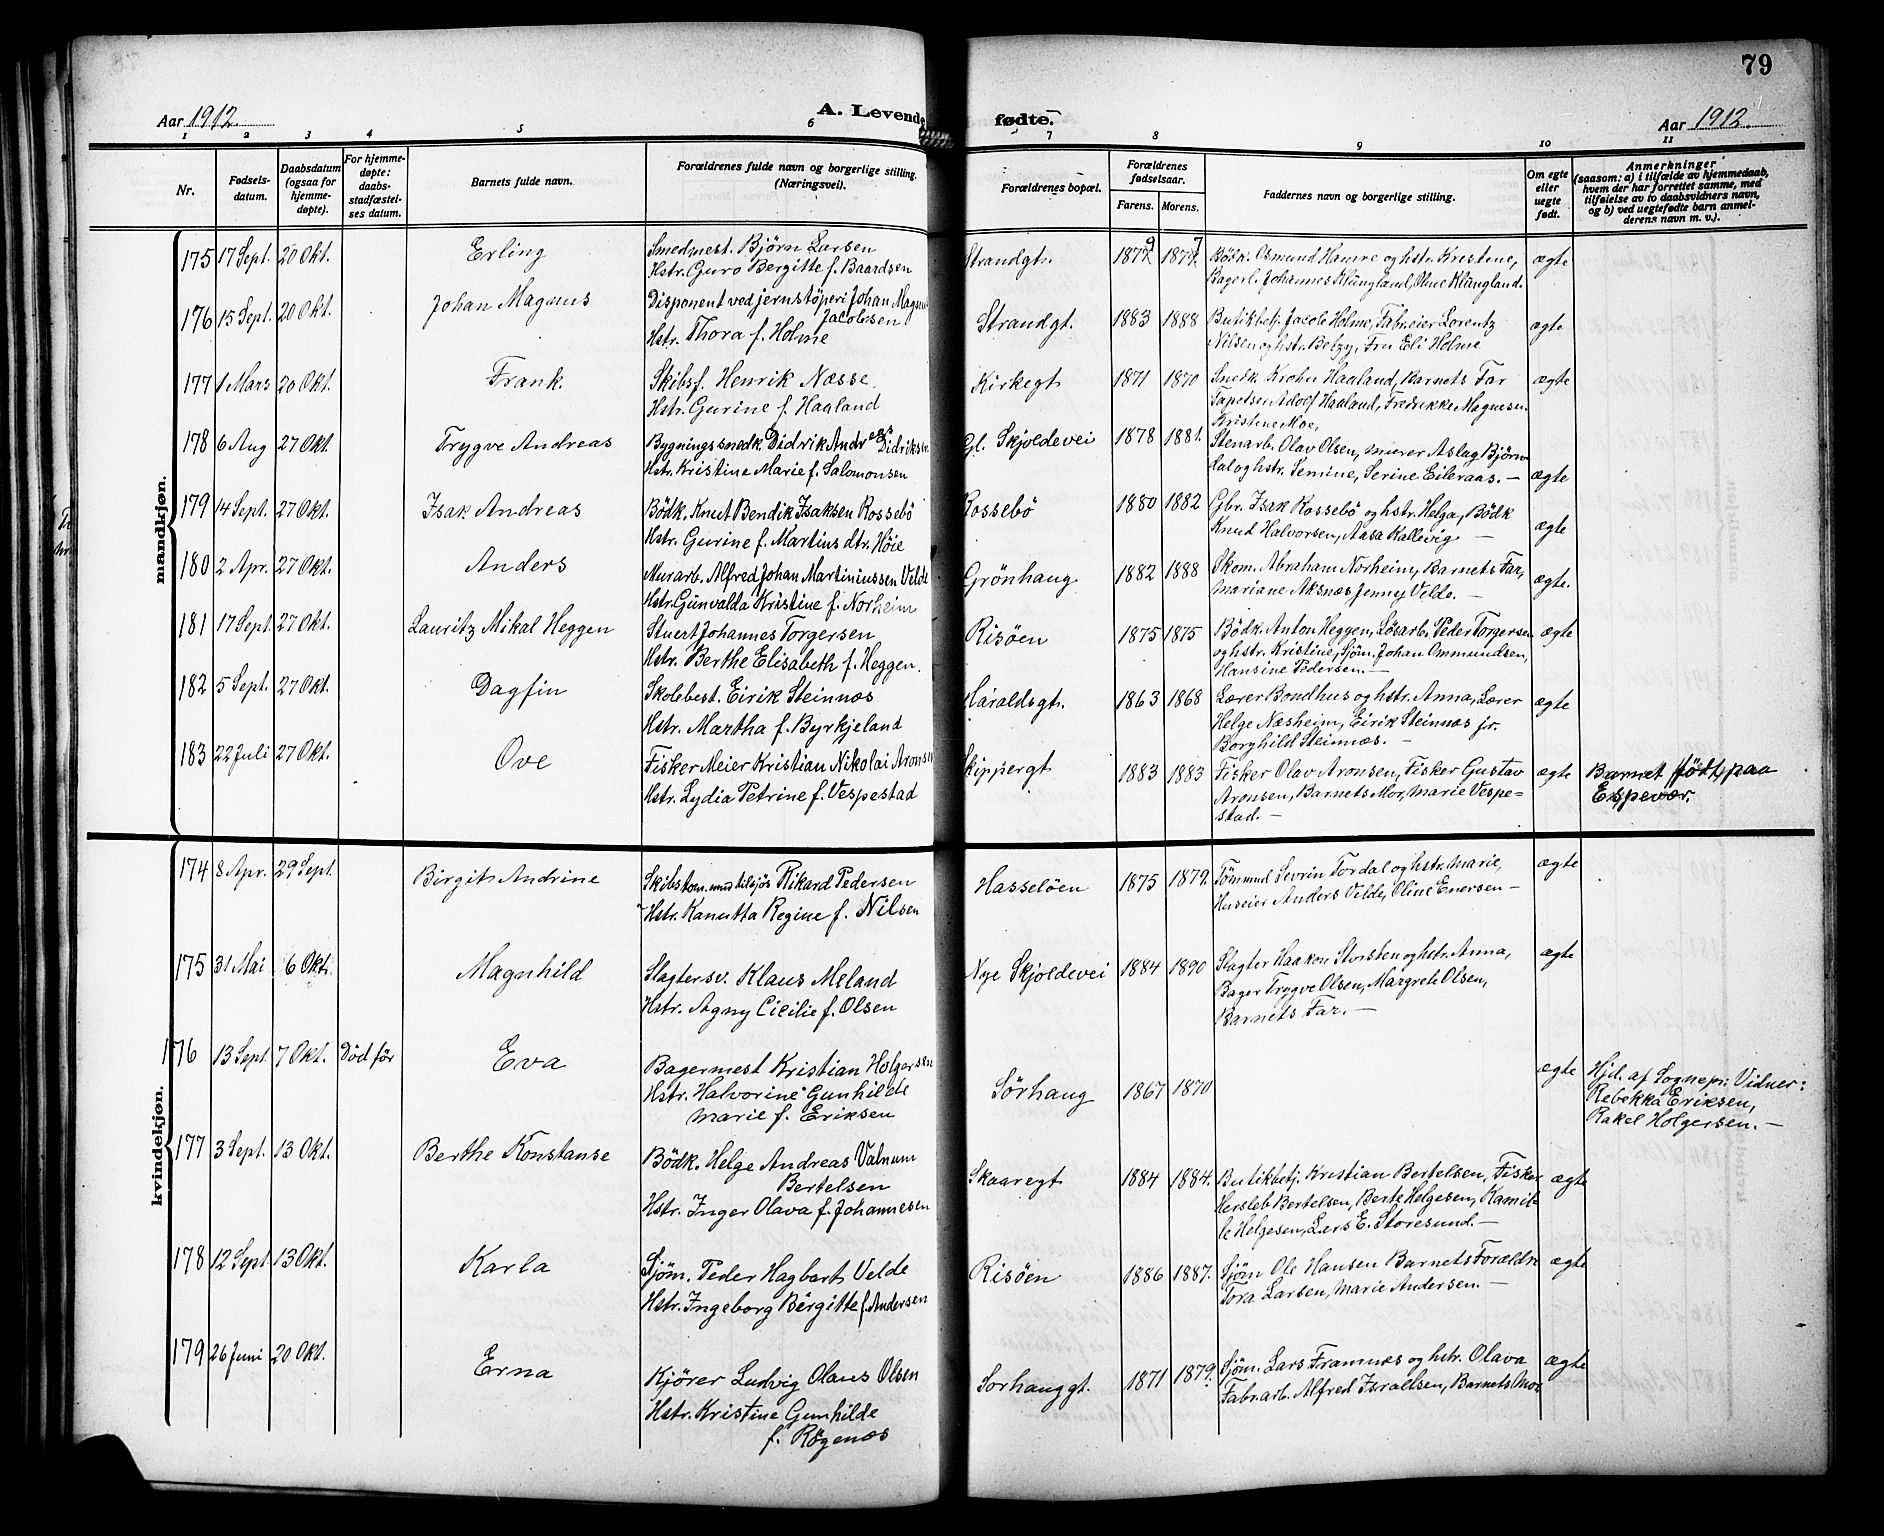 79
Aar 1912.
A. Levende fødte.
Aar 1912.
1 2 3 4 5 6 7 8 9 10 11
Nr.
Fødsels-
datum.
Daabsdatum
(ogsaa for
hjemme-
døpte).
For hjemme-
døpte:
daabs-
stadfæstel-
ses datum.
Barnets fulde navn.
Forældrenes fulde navn og borgerlige stilling.
(Næringsvei).
Forældrenes bopæl.
Forældrenes
fødselsaar.
Farens.
Morens.
Faddernes navn og borgerlige stilling.
Om egte
eller
uegte
født.
Anmerkninger
(saasom: a) i tilfælde av hjemmedaab,
hvem der har forrettet samme, med
tilføielse av to daabsvidners navn,
og b) ved uegtefødte barn anmel-
derens navn m. v.).
mandkjøn.
175 17 Sept. 20 Okt. Erling
Smedmest. Bjørn Larsen
Hstr. Guro Bergitte f. Baardsen
Strandgt. 1879 1877 Bödk. Osmund Hamre og hstr. Kristine,
Bagerl. Johannes Klungland, Oline Klungland. ægte
176 15 Sept. 20 Okt. Johan Magnus
Disponent ved jernstöperi Johan Magnus
Jacobsen
Hstr. Thora f. Holme
Strandgt. 1883 1888 Butikbetj. Jacob Holme, Fabr.eier Lorentz
Nilsen og hstr. Betzy, Fru Eli Holme ægte
177 1 Mars 20 Okt. Frank.
Skibsf. Henrik Næsse
Hstr. Gurine f. Haaland
Kirkegt 1871 1870 Snedk. Krohn Haaland, Barnets Far
Tapetser Adolf Haaland, Fredrikke Magnesen
Kristine Moe, ægte
178 6 Aug 27 Okt. Trygve Andreas
Bygningssnedk. Didrik Andreas Didriksen
Hstr. Kristine Marie f. Salomonsen
Gl. Skjoldevei 1878 1881. Stenarb. Olav Olsen, murer Aslag Bjørn
dal og hstr. Semine, Serine Eileraas. — ægte
179 14 Sept. 27 Okt. Isak Andreas
Bödk. Knut Bendik Isaksen Rossebö
Hstr. Gurine f. Martinsdtr. Höie
Rossebö 1880 1882 Gbr. Isak Rossebö og hstr. Helga, Bödk
Knud Halvorsen, Aasa Kallevig — ægte
180 2 Apr. 27 Okt. Anders
Murarb. Alfred Johan Martiniussen Velde
Hstr. Gunvalda Kristine f. Norheim
Grönhaug 1882 1888 Skom. Abraham Norheim, Barnets Far,
Mariane Aksnæs Jenny Velde. — ægte.
181 17 Sept. 27 Okt. Lauritz Mikal Heggen
Stuert Johannes Torgersen
Hstr. Berthe Elisabeth f. Heggen.
Risöen 1875 1875 Bödk. Anton Heggen, Lösarb. Peder Torgersen
og hstr. Kristine, Sjöm. Johan Ommundsen,
Hansine Pedersen. — ægte
182 5 Sept. 27 Okt. Dagfin
Skolebest. Eirik Steinnæs
Hstr. Martha f. Byrkjeland
Haraldsgt. 1863 1868 Lærer Bondhus og hstr. Anna, Lærer
Helge Næsheim, Eirik Steinnæs jr.
Borghild Steinnæs. — ægte
183 22 Juli 27 Okt. Ove
Fisker Meier Kristian Nikolai Aronsen
Hstr. Lydia Petrine f. Vespestad
Skippergt 1883 1883 Fisker Olav Aronsen, Fisker Gustav
Aronsen, Barnets Mor, Marie Vespe=
stad. — ægte
Barnet født paa
Espevær.
kvindekjøn.
174 8 Apr. 29 Sept. Birgit Andrine
Skibstöm.mand tilsjös Rikard Pedersen
Hstr. Kanutta Regine f. Nilsen
Hasselöen 1875 1879. Tömmmd Sevrin Tordal og hstr. Marie,
Huseier Anders Velde, Oline Enersen — ægte
175 31 Mai 6 Okt. Magnhild
Slagtersv. Klaus Meland
Hstr. Agny Cicilie f. Olsen
Nye Skjoldevei 1884 1890 Slagter Haakon Storsten og hstr. Anna,
Bager Trygve Olsen, Margrete Olsen,
Barnets Far. — ægte
176 13 Sept. 7 Okt. Död för Eva
Bagermest Kristian Holgersen
Hstr. Halvorine Gunhilde
Marie f. Eriksen
Sörhaug 1867 1870 ægte
Hjd. af Sognepr: Vidner:
Rebekka Eriksen,
Rakel Holgersen. —
177 3 Sept. 13 Okt. Berthe Konstanse
Bödk. Helge Andreas Valnum
Bertelsen
Hstr. Inger Olava f. Johannesen
Skaaregt 1884 1884. Butikbetj. Kristian Bertelsen, Fisker
Hersleb Bertelsen, Berte Helgesen, Kamil-
le Helgesen, Lars E. Storesund. — ægte
178 12 Sept 13 Okt. Karla
Sjöm. Peder Hagbart Velde
Hstr. Ingeborg Bergitte f. Andersen
Risöen 1886 1887. Sjöm Ole Hansen Barnets Forældre
Tora Larsen, Marie Andersen. — ægte
179 26 Juni 20 Okt. Erna
Kjörer Ludvig Olaus Olsen
Hstr. Kristine Gunhilde
f. Rögenæs
Sorhauggt. 1871 1879. Sjöm. Lars Framnæs og hstr. Olava
Fabr.arb. Alfred Israelsen, Barnets Mor ægte